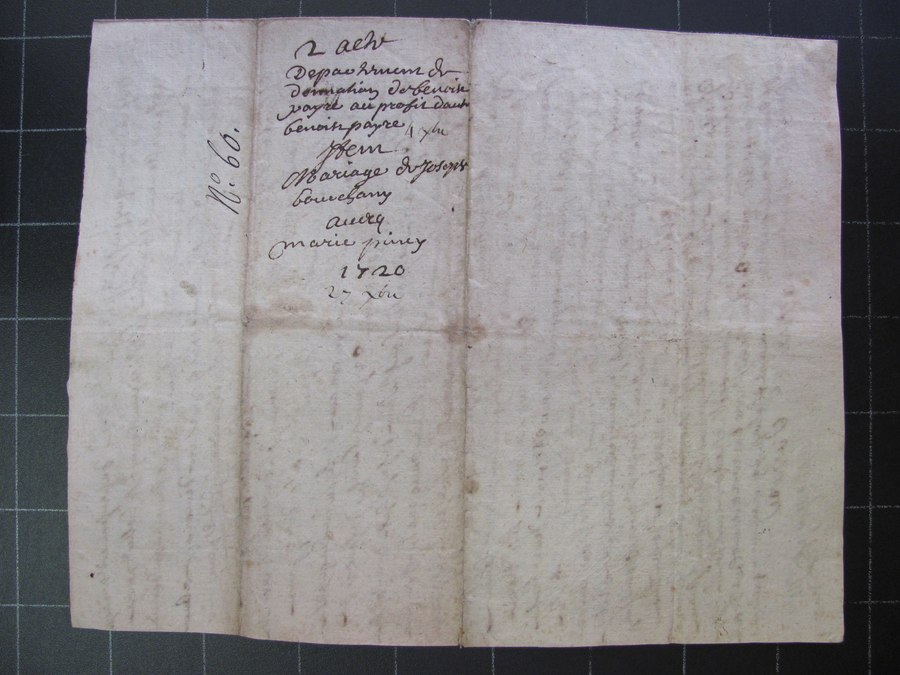 N.° 60.
2 acte
Departement de
donnation de benoist
payre au profit d'aut
benoist payre 4 xbre
Item
Mariage de Joseph
bouchany
avecq
marie piney
1720
27 xbre